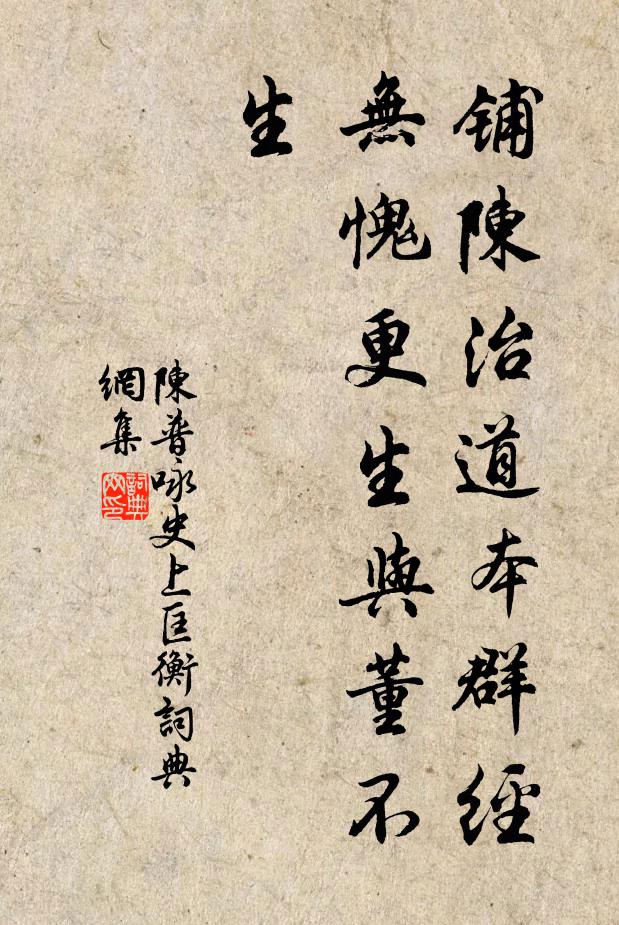 鋪陳治道本群經
無愧更生與董不
生
陳普咏史上匡衡詞典
網集
詞典